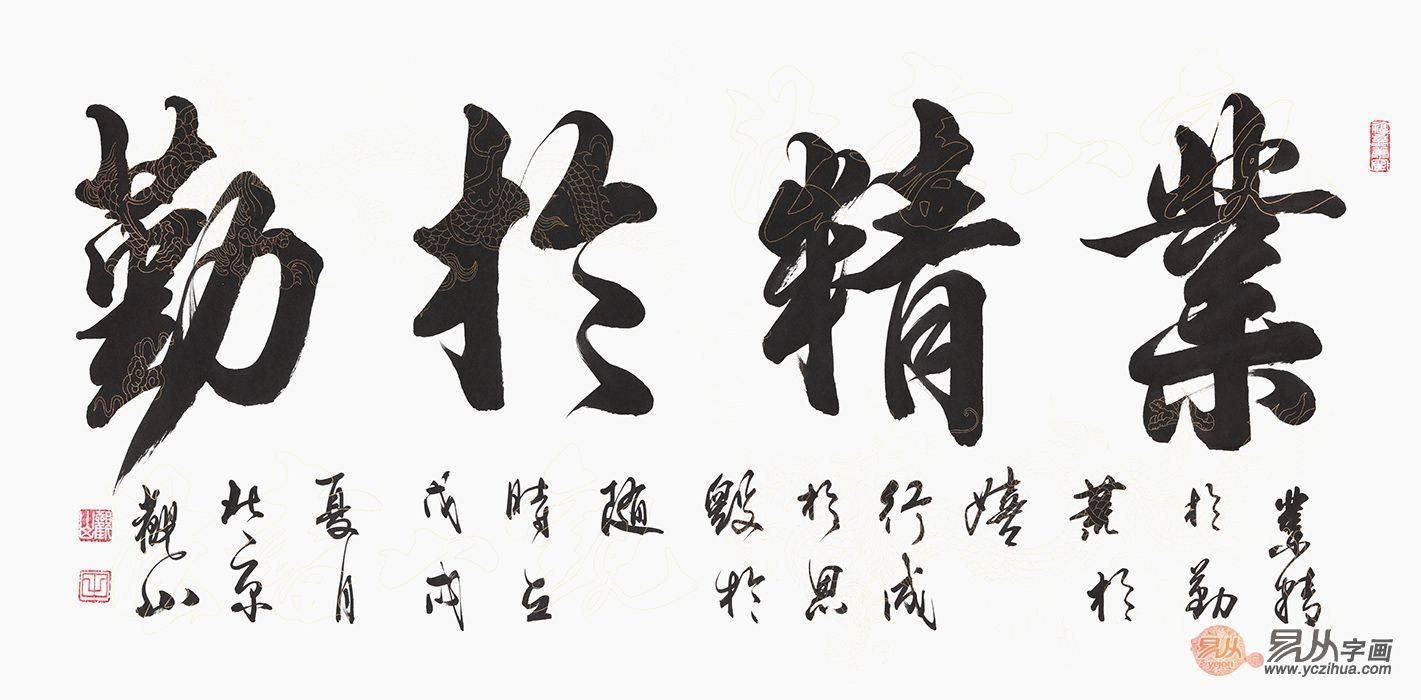 業精於勤
業精
於勤
荒於
嬉
行成
於思
毀於
随
時在
戊戌
夏月
北京
觀山
易从
yejon
易从字画
www.yczihua.com